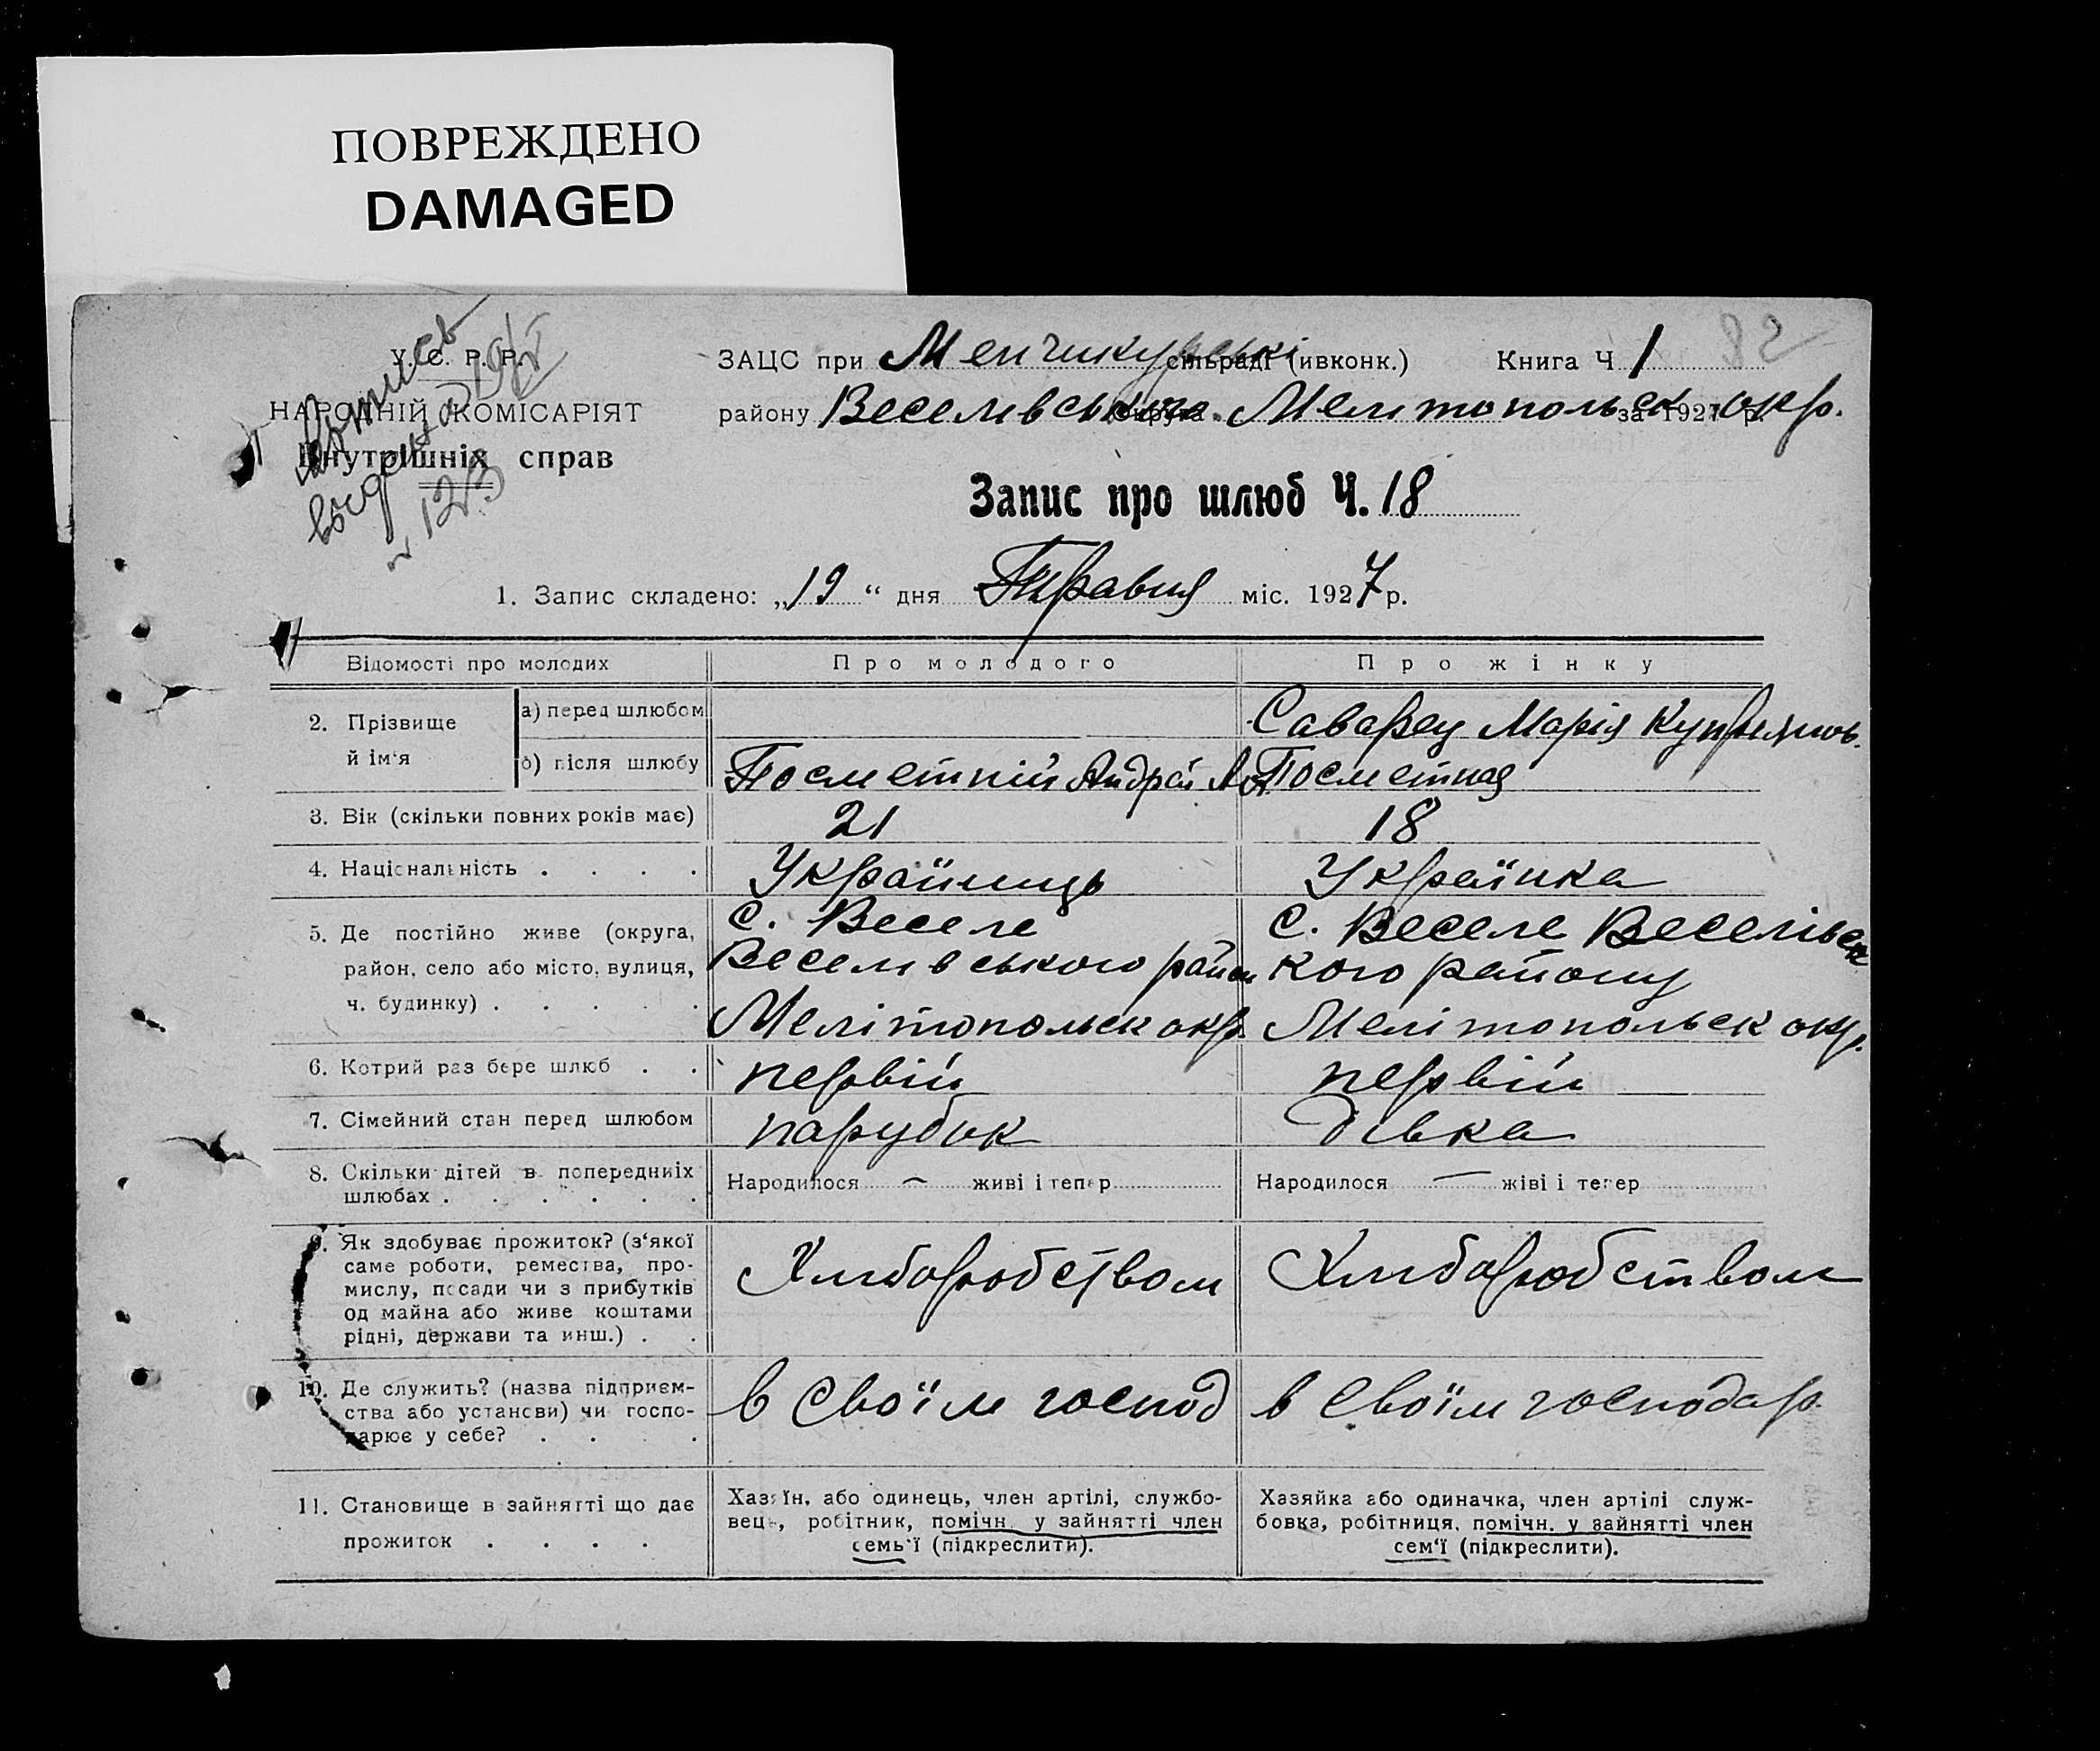 ПОВРЕЖДЕНО
DAMAGED
У. С. Р. Р.
НАРОДНІЙ КОМІСАРІЯТ
Внутрішніх справ
ЗАЦС при Менчикурські сільраді (ивконк.) Книга Ч 1 82
району Веселівського округа Мелітопольск окр. за 1927 р.
Запис про шлюб Ч. 18
1. Запис складено: „19“ дня Травня міс. 1927 р.
Відомості про молодих Про молодого Про жінку
2. Прізвище й ім'я
а) перед шлюбом Саварец Марія
б) після шлюбу Посметній Андрей Посметная
3. Вік (скільки повних років має) 21 18
4. Національність . . . . Україниць Українка
5. Де постійно живе (округа, район, село або місто, вулиця, ч. будинку) . . . . .
с. Веселе
Веселівського район
Мелітопольск окр.
с. Веселе Веселівск
кого району
Мелітопольск окр.
6. Котрий раз бере шлюб . . первій первій
7. Сімейний стан перед шлюбом парубок дівка
8. Скільки дітей в попередниіх шлюбах . . . . . . Народилося — живі і тепер Народилося — жіві і тепер
9. Як здобуває прожиток? (з'якої
саме роботи, ремества, про-
мислу, посади чи з прибутків
од майна або живе коштами
рідні, держави та инш.) . .
Хлиборобством Хлиборобством
10. Де служить? (назва підприєм-
ства або установи) чи госпо-
дарює у себе? . . . .
в своїм господ в своїм господар.
11. Становище в зайнятті що дає
прожиток . . . .
Хазяїн, або одинець, член артілі, службо-
вець, робітник, помічн. у зайнятті член
семь'ї (підкреслити).
Хазяйка або одиначка, член артілі служ-
бовка, робітниця, помічн. у зайнятті член
сем'ї (підкреслити).